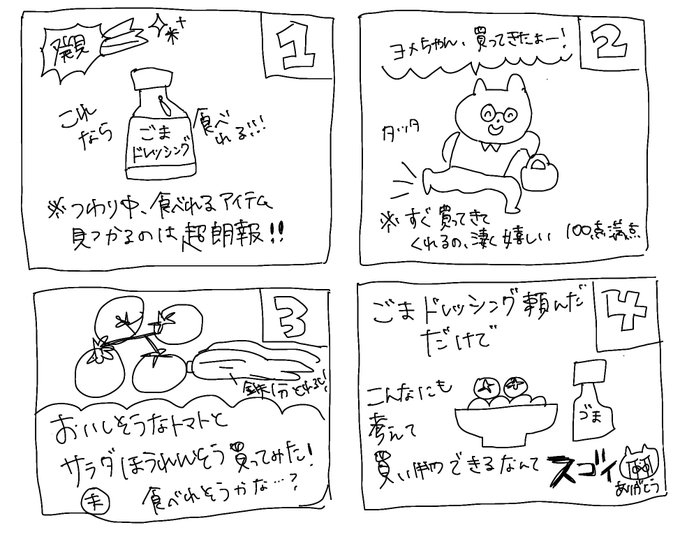 1
発見
これ
なら
食べ
れる!!!
ごま
ドレッシング
※つわり中、食べれるアイテム
見つかるのは超朗報!!
2
ヨメちゃん、買ってきたよー!
タッタ
※すぐ買ってきて
くれるの、凄く嬉しい 100点満点
3
鉄分とれる!
おいしそうなトマトと
サラダほうれんそう買ってみた!
食べれそうかな…?
夫
4
ごまドレッシング頼んだ
だけで
こんなにも
考えて
買い物できるなんて
スゴイ
ごま
ありがとう